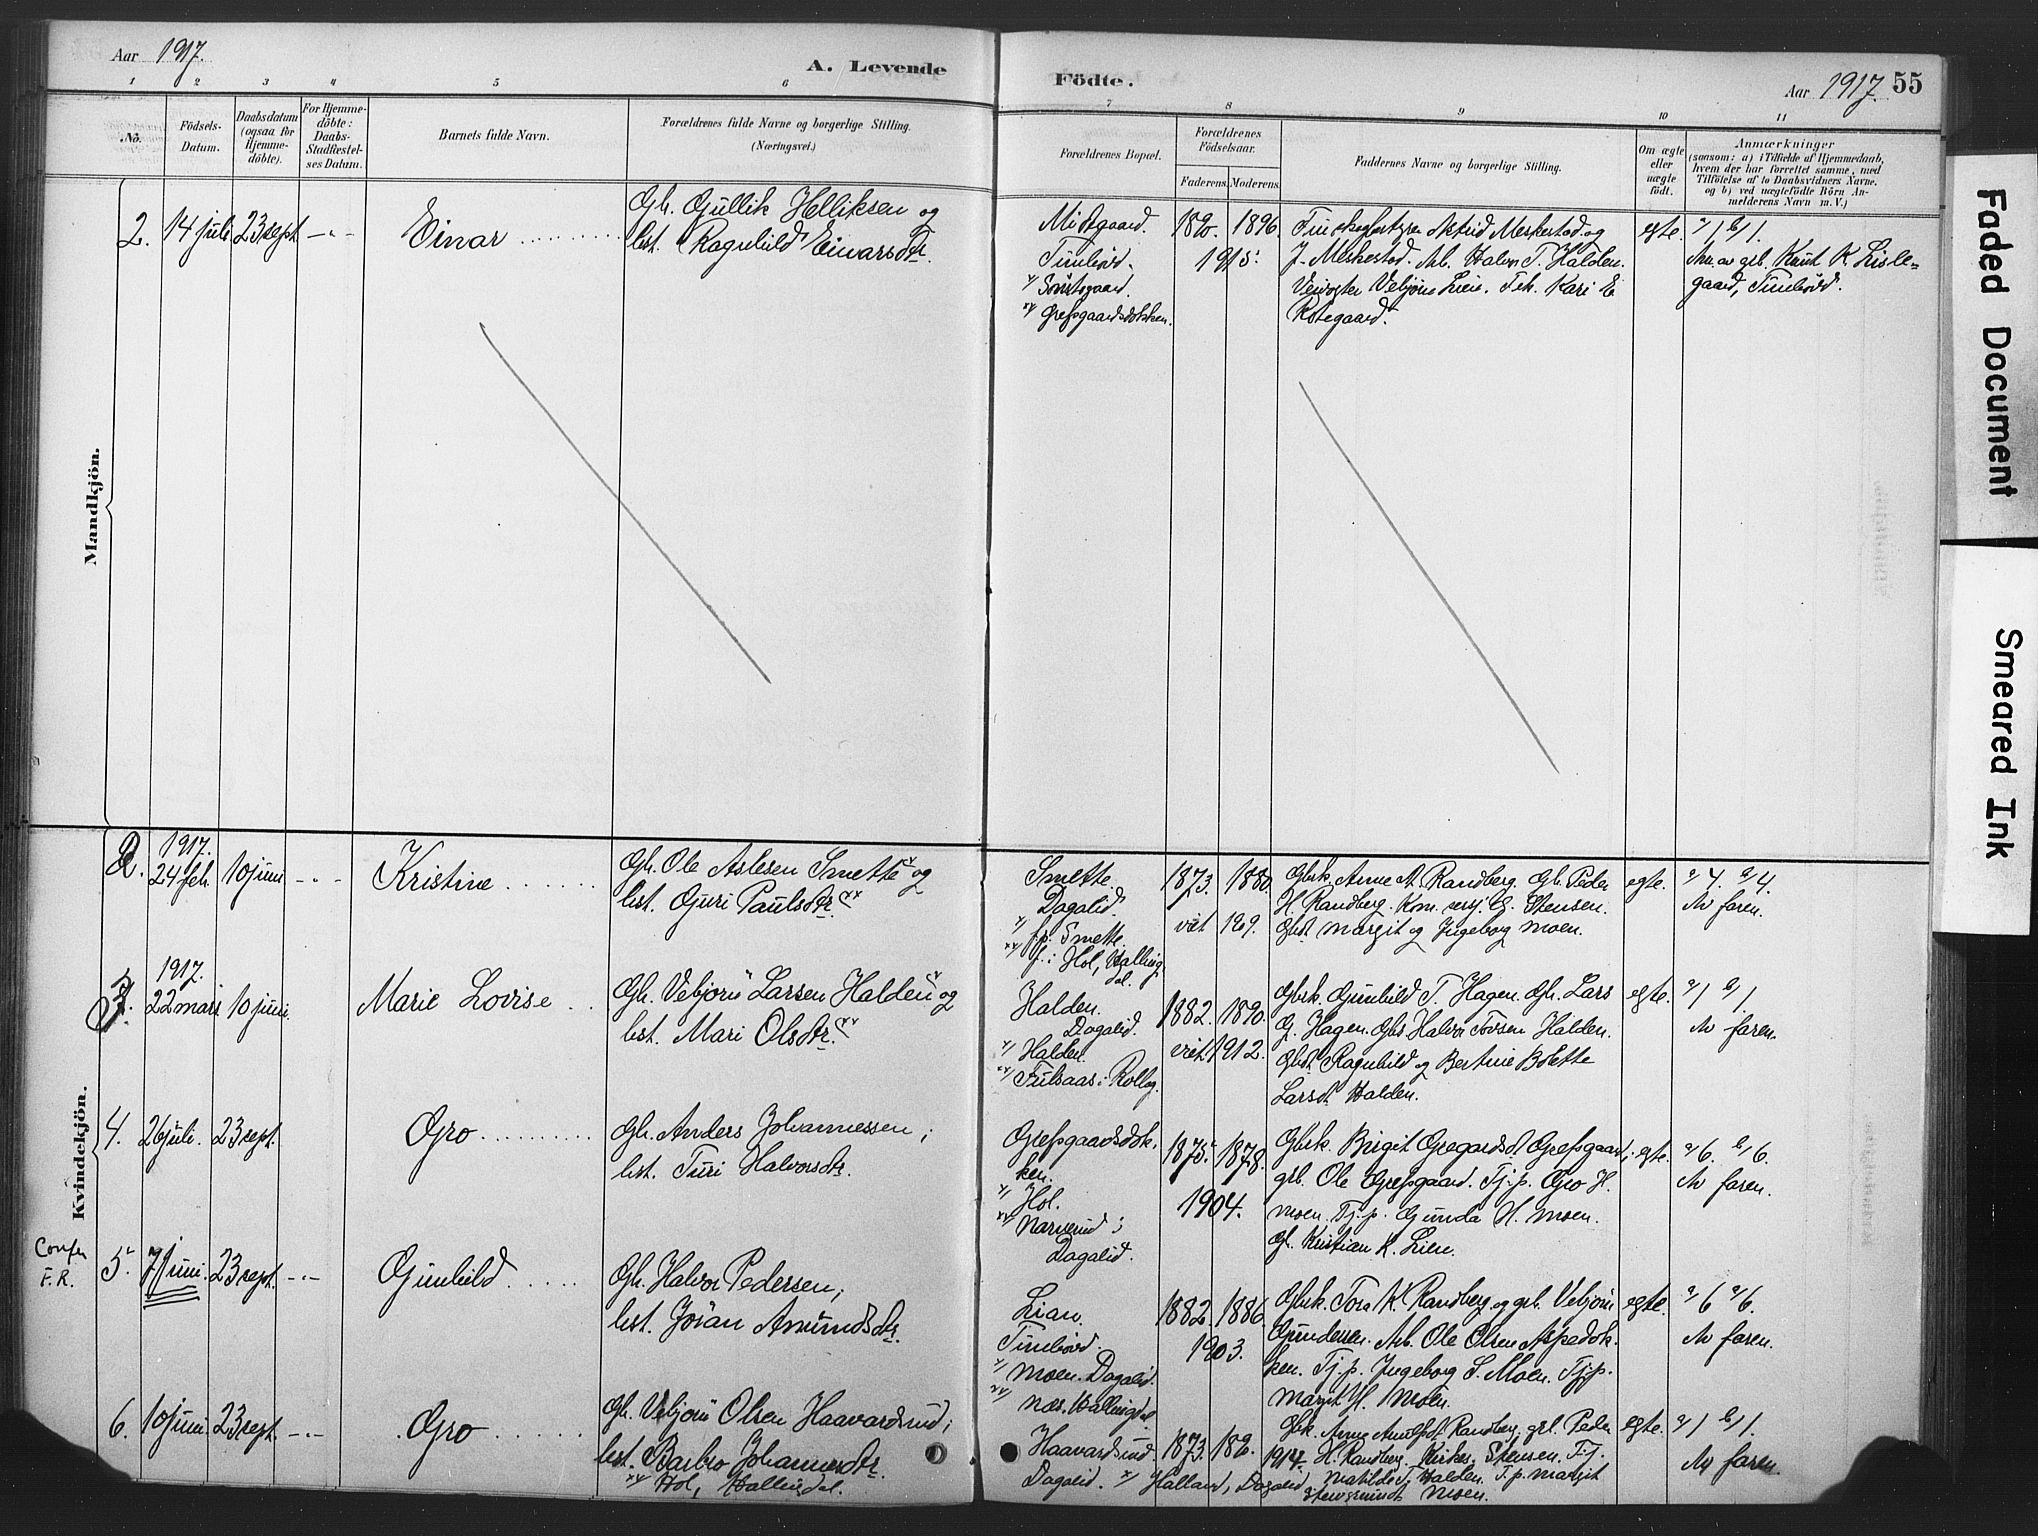 Aar 1917.
A. Levende
Födte.
Aar 1917. 55
1 2 3 4 5 6 7 8 9 10 11
No.
Födsels-
Datum.
Daabsdatum
(ogsaa for
Hjemme-
döbte).
For Hjemme-
döbte:
Daabs-
Stadfæstel-
ses Datum.
Barnets fulde Navn.
Forældrenes fulde Navne og borgerlige Stilling.
(Næringsvei.)
Forældrenes Bopæl.
Forældrenes
Födselsaar.
Faderens. Moderens.
Faddernes Navne og borgerlige Stilling.
Om ægte
eller
uægte
födt.
Anmærkninger
(saasom: a) i Tilfælde af Hjemmedaab,
hvem der har forrettet samme, med
Tilföielse af to Daabsvidners Navne,
og b) ved uægtefödte Börn An-
melderens Navn m. V.)
Mandkjön.
2. 14 juli 23 sept. -"- Einar
Gbr. Gullik Helliksen og
hst. Ragnhild Einarsdtr.
Midtgaard.
Tunhövd.
x/ Synstgaard.
xx/ Grefsgaardsdokken.
1890. 1896.
1915.
Astrid Merkestad og
J. Merkestad. Arb. Halvor T. Halden.
Veivogter Vebjörn Lien. Tch. Kari E.
Rotegaard.
egte.
a/1 b/1.
Anm. av grb. Knut K. Lisle-
gaard, Tunhövd.
Kvindekjön.
1917.
2. 24 feb. 10 juni -"- Kristine
Gbr. Ole Aslesen Smette x/ og
hst. Guri Paulsdtr. xx
Smette.
Dagalid.
x/ pp. Smette.
xx/ f. i Hol, Halling-
dal.
1873. 1880.
viet 1909.
Gbrk. Anne A. Randberg. Gbr. Peder
H. Randberg. Kom. versj. G. Stensen.
Gbdt. Margit og Ingeborg Moen.
egte.
a/4. b/4.
Av faren.
1917.
3. 22 mars 10 juni. Marie Lovise
Gbr. Vebjörn Larsen Halden x/ og
hst. Mari Olsdtr. xx
Halden.
Dagalid.
x/ Halden.
xx/ Fulsaas i Rollag.
1882. 1890.
viet 1912.
Gbrk. Gunhild T. Hagen. Gbr. Lars
G. Hagen. Gbs. Halvor Tovsen Halden.
Gbdt. Ragnhild og Bertine Bolette
Larsdt. Halden.
egte.
a/1 b/1.
Av faren.
4. 26 juli. 23 sept. Gro
Gbr. Anders Johannessen;
hst. Turi Halvorsdtr.
Grefsgaardsdok-
ken.
x/ Hol.
xx/ Narverud i
Dagalid.
1875. 1878.
1904.
Gbrk. Birgit Gregardsdt. Grefsgaard;
grb. Ole Grefsgaard. Tj.p. Gro H.
Moen. Tj.p. Gunda H. Moen.
Gl. Kristian K. Lien.
egte.
a/6. b/6.
Av faren.
Confer
F.R.
5. 7 juni. 23 sept. -"- Gunhild
Gbr. Halvor Pedersen;
hst. Jöran Amundsdtr.
Lian.
Tunhövd.
x/ Moen. Dagalid.
xx/ Nes. Hallingdal
1882. 1886.
1903.
Gbrk. Tora K. Randberg og grb. Vebjörn
Gundersen. Arb. Ole Olsen Aspedok-
ken. Tj.p. Ingeborg S. Moen. Tj.p.
Margit H. Moen.
egte.
a/6 b/6.
Av faren.
6. 10 juni. 23 sept. -"- Gro
Gbr. Vebjörn Olsen Haavardsrud;
hst. Barbro Johannesdtr.
xx/ Hol, Hallingdal.
Haavardsrud.
Dagalid. x/ Halland, Dagalid
1873. 189.
1914.
Gbk. Anne Arnolfsdt. Randberg. grb. Peder
H. Randberg. Kirkes. Stensen. Tj.
Matilde T. Halden. T.p. Margit
Moen.
egte.
a/1 b/1.
Av faren.
Faded Document
Smeared Ink